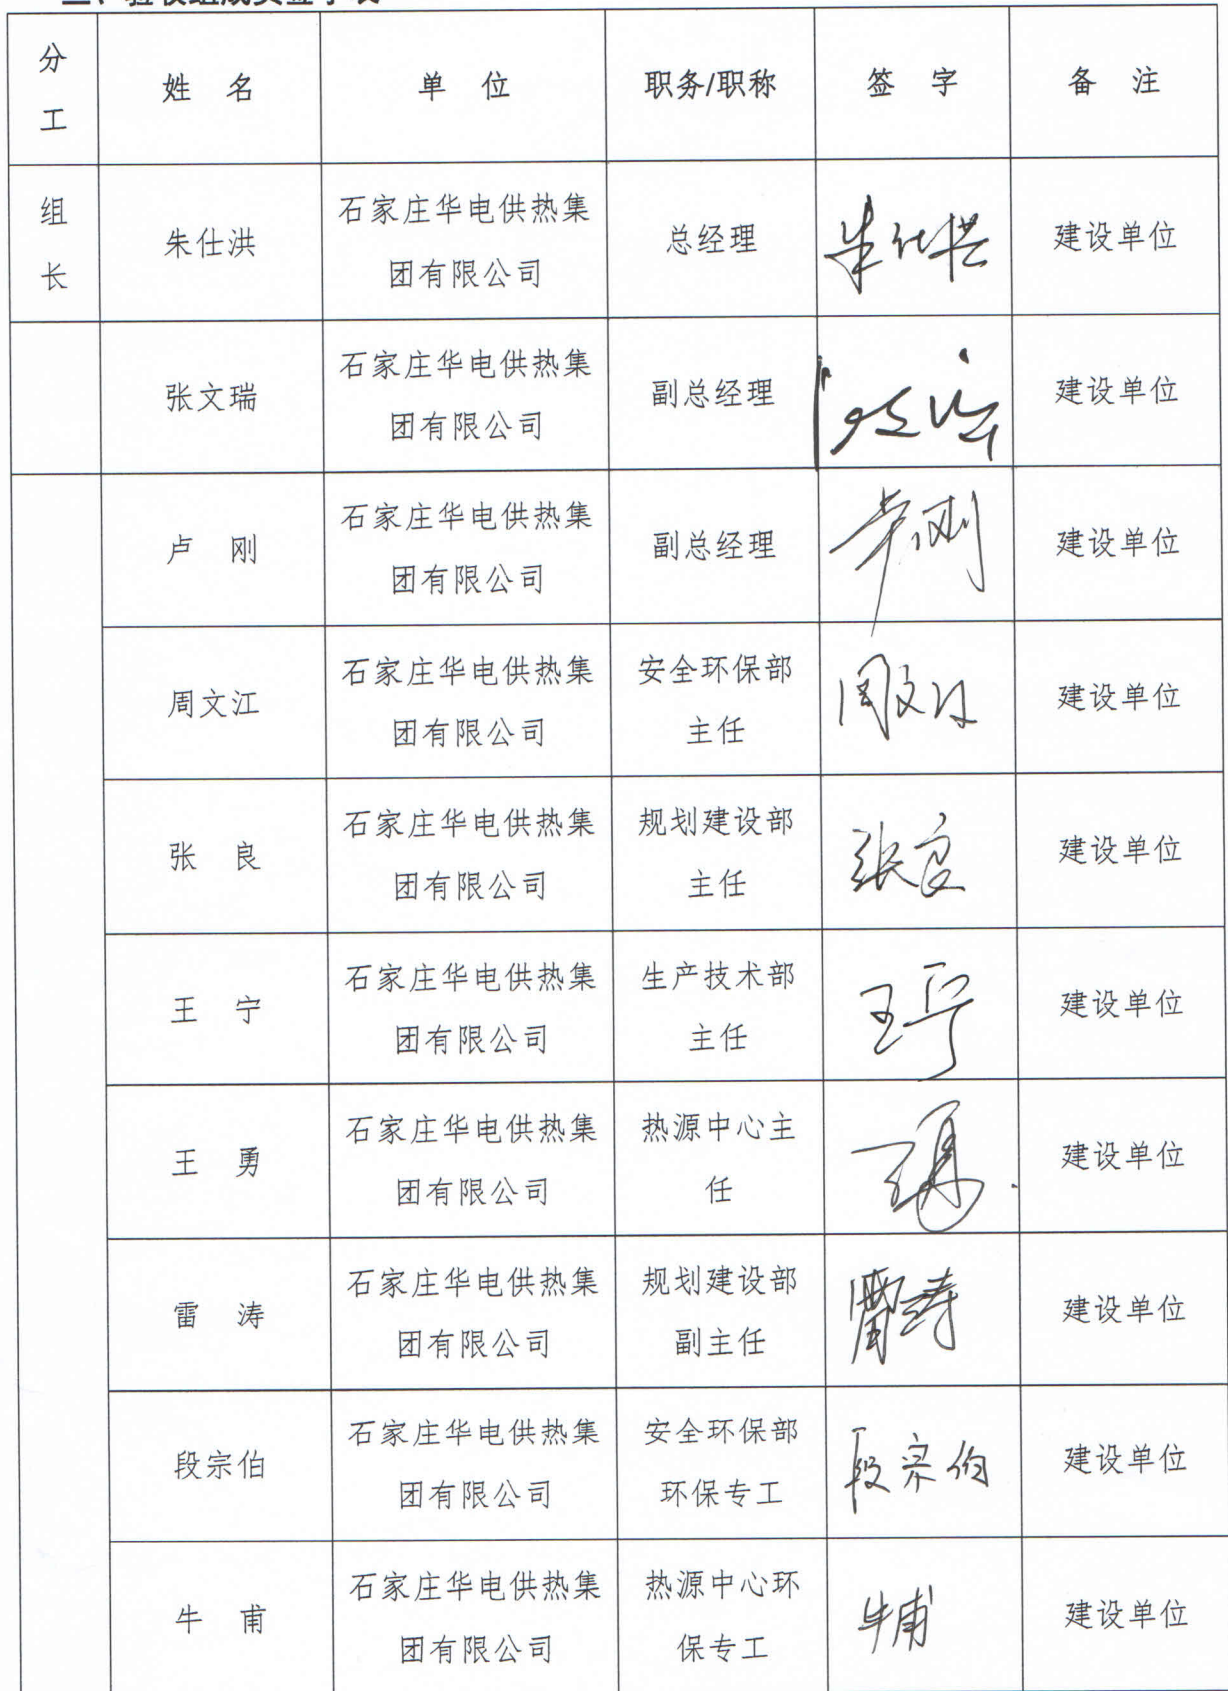 验收组成员签字表
分工 姓 名 单 位 职务/职称 签 字 备 注
组长 朱仕洪 石家庄华电供热集团有限公司 总经理 朱仕洪 建设单位
张文瑞 石家庄华电供热集团有限公司 副总经理 建设单位
卢 刚 石家庄华电供热集团有限公司 副总经理 卢刚 建设单位
周文江 石家庄华电供热集团有限公司 安全环保部主任 周文江 建设单位
张 良 石家庄华电供热集团有限公司 规划建设部主任 张良 建设单位
王 宁 石家庄华电供热集团有限公司 生产技术部主任 王宁 建设单位
王 勇 石家庄华电供热集团有限公司 热源中心主任 王勇 建设单位
雷 涛 石家庄华电供热集团有限公司 规划建设部副主任 雷涛 建设单位
段宗伯 石家庄华电供热集团有限公司 安全环保部环保专工 段宗伯 建设单位
牛 甫 石家庄华电供热集团有限公司 热源中心环保专工 牛甫 建设单位